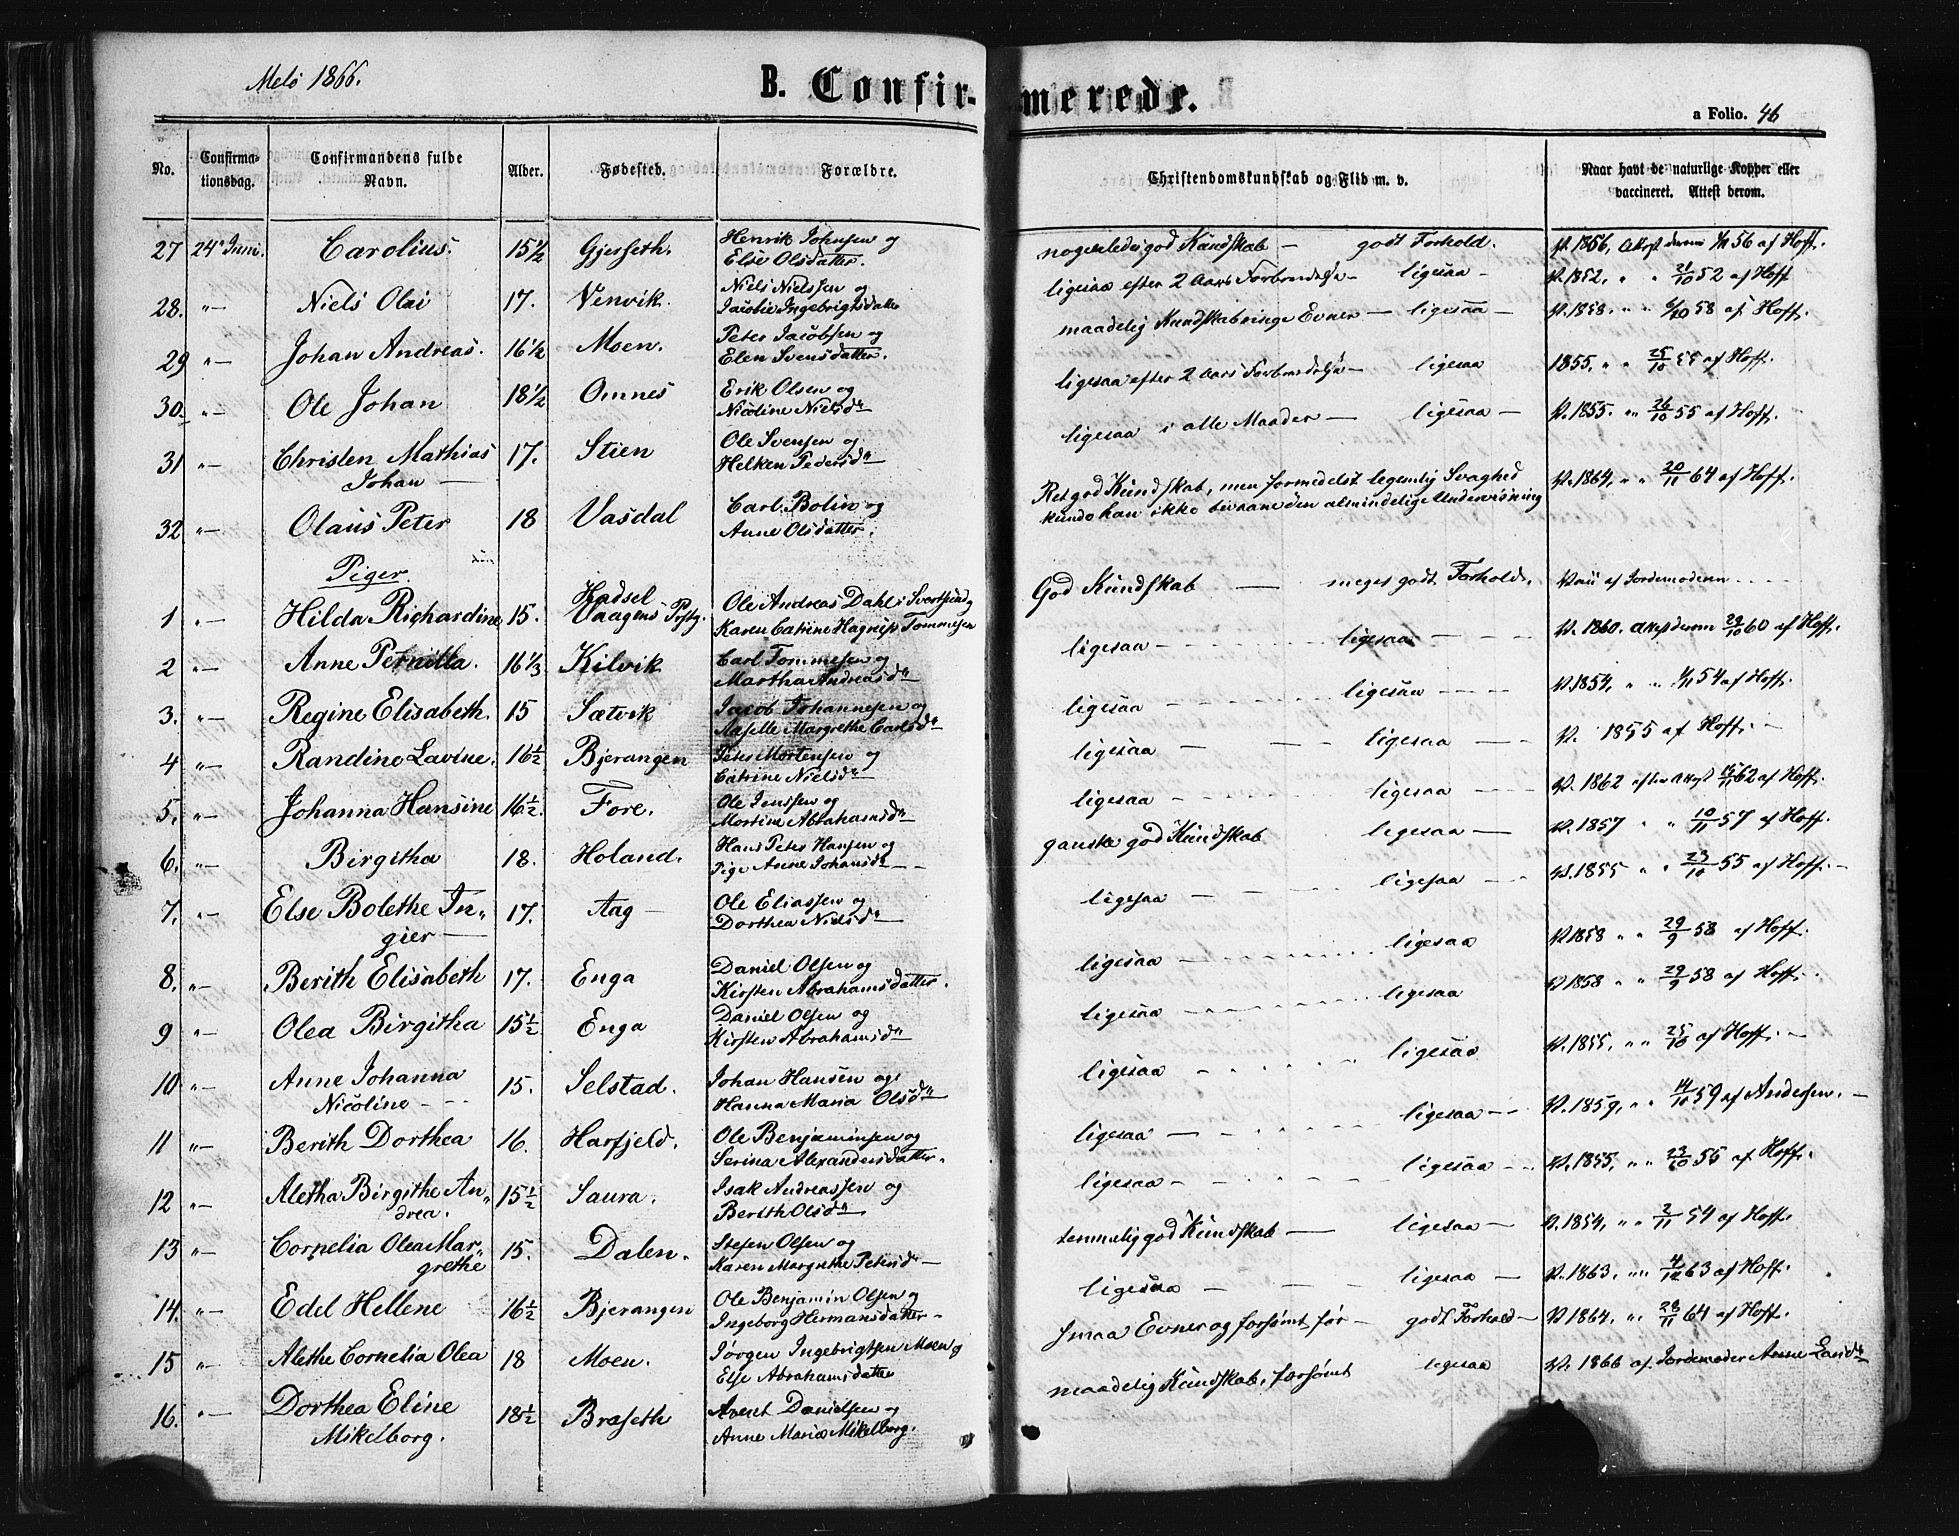 Melö 1866.
B. Confirmerede.
a Folio. 46
No. Confirmationsdag. Confirmandens fulde Navn. Alder. Fødested. Forældre. Christendomskundskab og Flid m. v. Naar havt de naturlige Kopper eller vaccineret. Attest derom.
27 24de Juni. Carolius. 15 1/2 Gjersseth. Henrik Johnsen og Else Olsdatter. nogenledes god Kundskab — godt Forhold. V. 1856, Attest derom 56 af Hoff.
28. "— Niels Olai 17. Venvik. Niels Nielssen og Jacobie Ingebrigtsdatter ligesaa efter 2 Aars Forberedelse — ligesaa — V. 1852, " " 21/10 52 af Hoff
29 "— Johan Andreas. 16 1/2 Moen. Peter Jacobsen og Elen Svensdatter. maadelig Kundskab ringe Evner — ligesaa — V. 1858. " " 6/10 58 af Hoff.
30. "— Ole Johan 18 1/2 Omnes Erik Olsen og Nicoline Nielsdr ligesaa efter 2 Aars Forberedelse — ligesaa 1855, " " 25/10 55 af Hoff.
31 "— Christen Mathias Johan — 17. Stien Ole Svensen og Helken Pedersdr ligesaa i alle Maader — ligesaa — V. 1855. " " 26/10 55 af Hoff.
32 "— Olaus Peter 18 Vasdal Carl Bolin og Anne Olsdatter. Ret god Kundskab, men formedelst legemlig Svaghed kunde han ikke bivaane den almindelige Underviisning V. 1864, " " 20/11 64 af Hoff.
Piger.
1 "— Hilda Richardine 15. Hadsel Vaagens Prstg. Ole Andreas Dahl i Svartsund og Karen Catrine Hagrup Tommesen God Kundskab — meget godt Forhold. Vac af Jordemoderen
2 "— Anne Pernilla. 16 1/3 Kilvik Carl Tommesen og Martha Andreasdr ligesaa — ligesaa — V. 1860. Attest derom 29/10 60 af Hoff.
3. "— Regine Elisabeth. 15 Sætvik Jacob Johannesen og Aaselle Margrethe Carlsdr ligesaa — ligesaa — V. 1854, " " 54 af Hoff.
4 "— Randine Lavine. 16 1/2 Bjerangen Peter Mortensen og Catrine Nielsdr ligesaa — ligesaa — V. 1855 af Hoff. —
5. "— Johanna Hansine 16 1/2. Fore. Ole Jenssen og Mortine Abrahamsdr ligesaa — ligesaa — V. 1862 efter Attest 62 af Hoff.
6. "— Birgitha 18. Holand. Hans Peter Hansen og Pige Anne Johansdr ganske god Kundskab ligesaa — V. 1857 " " 10/11 57 af Hoff.
7. "— Else Bolethe Ingier — 17. Aag — Ole Eliassen og Dorthea Nielsdr ligesaa — ligesaa — V. 1855 " " 23/10 55 af Hoff. —
8. "— Berith Elisabeth 17. Enga Daniel Olsen og Kirsten Abrahamsdatter. ligesaa — ligesaa V. 1858 " " 29/9 58 af Hoff.
9 "— Olea Birgitha 15 1/2 Enga Daniel Olsen og Kirsten Abrahamsdr ligesaa — ligesaa V. 1858 " " 29/9 58 af Hoff.
10 "— Anne Johanna Nicoline — 15. Selstad. Johan Hansen og Hanna Maria Olsdr ligesaa — ligesaa V. 1855, " " 25/10 af Hoff. —
11 "— Berith Dorthea 16. Harfjeld. Ole Benjaminsen og Serina Alexandersdatter. ligesaa — ligesaa — V. 1859, " " 14/10 59 af Andersen. —
12 "— Aletha Birgithe Andrea. 15 1/2 Saura. Isak Andreassen og Berith Olsdr ligesaa — ligesaa — V. 1855, " " 23/10 55 af Hoff.
13 "— Cornelia Olea Margrethe 15. Dalen. Stefen Olsen og Karen Margrethe Petersdr — temmelig god Kundskab — ligesaa — V. 1854, " " 2/11 54 af Hoff.
14. "— Edel Hellene 16 1/2 Bjerangen Ole Benjamin Olsen og Ingeborg Hermansdatter — ligesaa — ligesaa — V. 1863, " " 4/12 63 af Hoff.
15 "— Alethe Cornelia Olea 18 Moen. Jørgen Ingebrigtsen Moen og Else Abrahamsdatter smaa Evner og forsømt før — godt Forhold — V. 1864, " " 28/11 64 af Hoff.
16. "— Dorthea Eline Mikelborg. 18 1/2 Braseth Arent Danielsen og Anne Maria Mikelborg. maadelig Kundskab, forsømt ligesaa V. 1866 af Jordemoder Anne